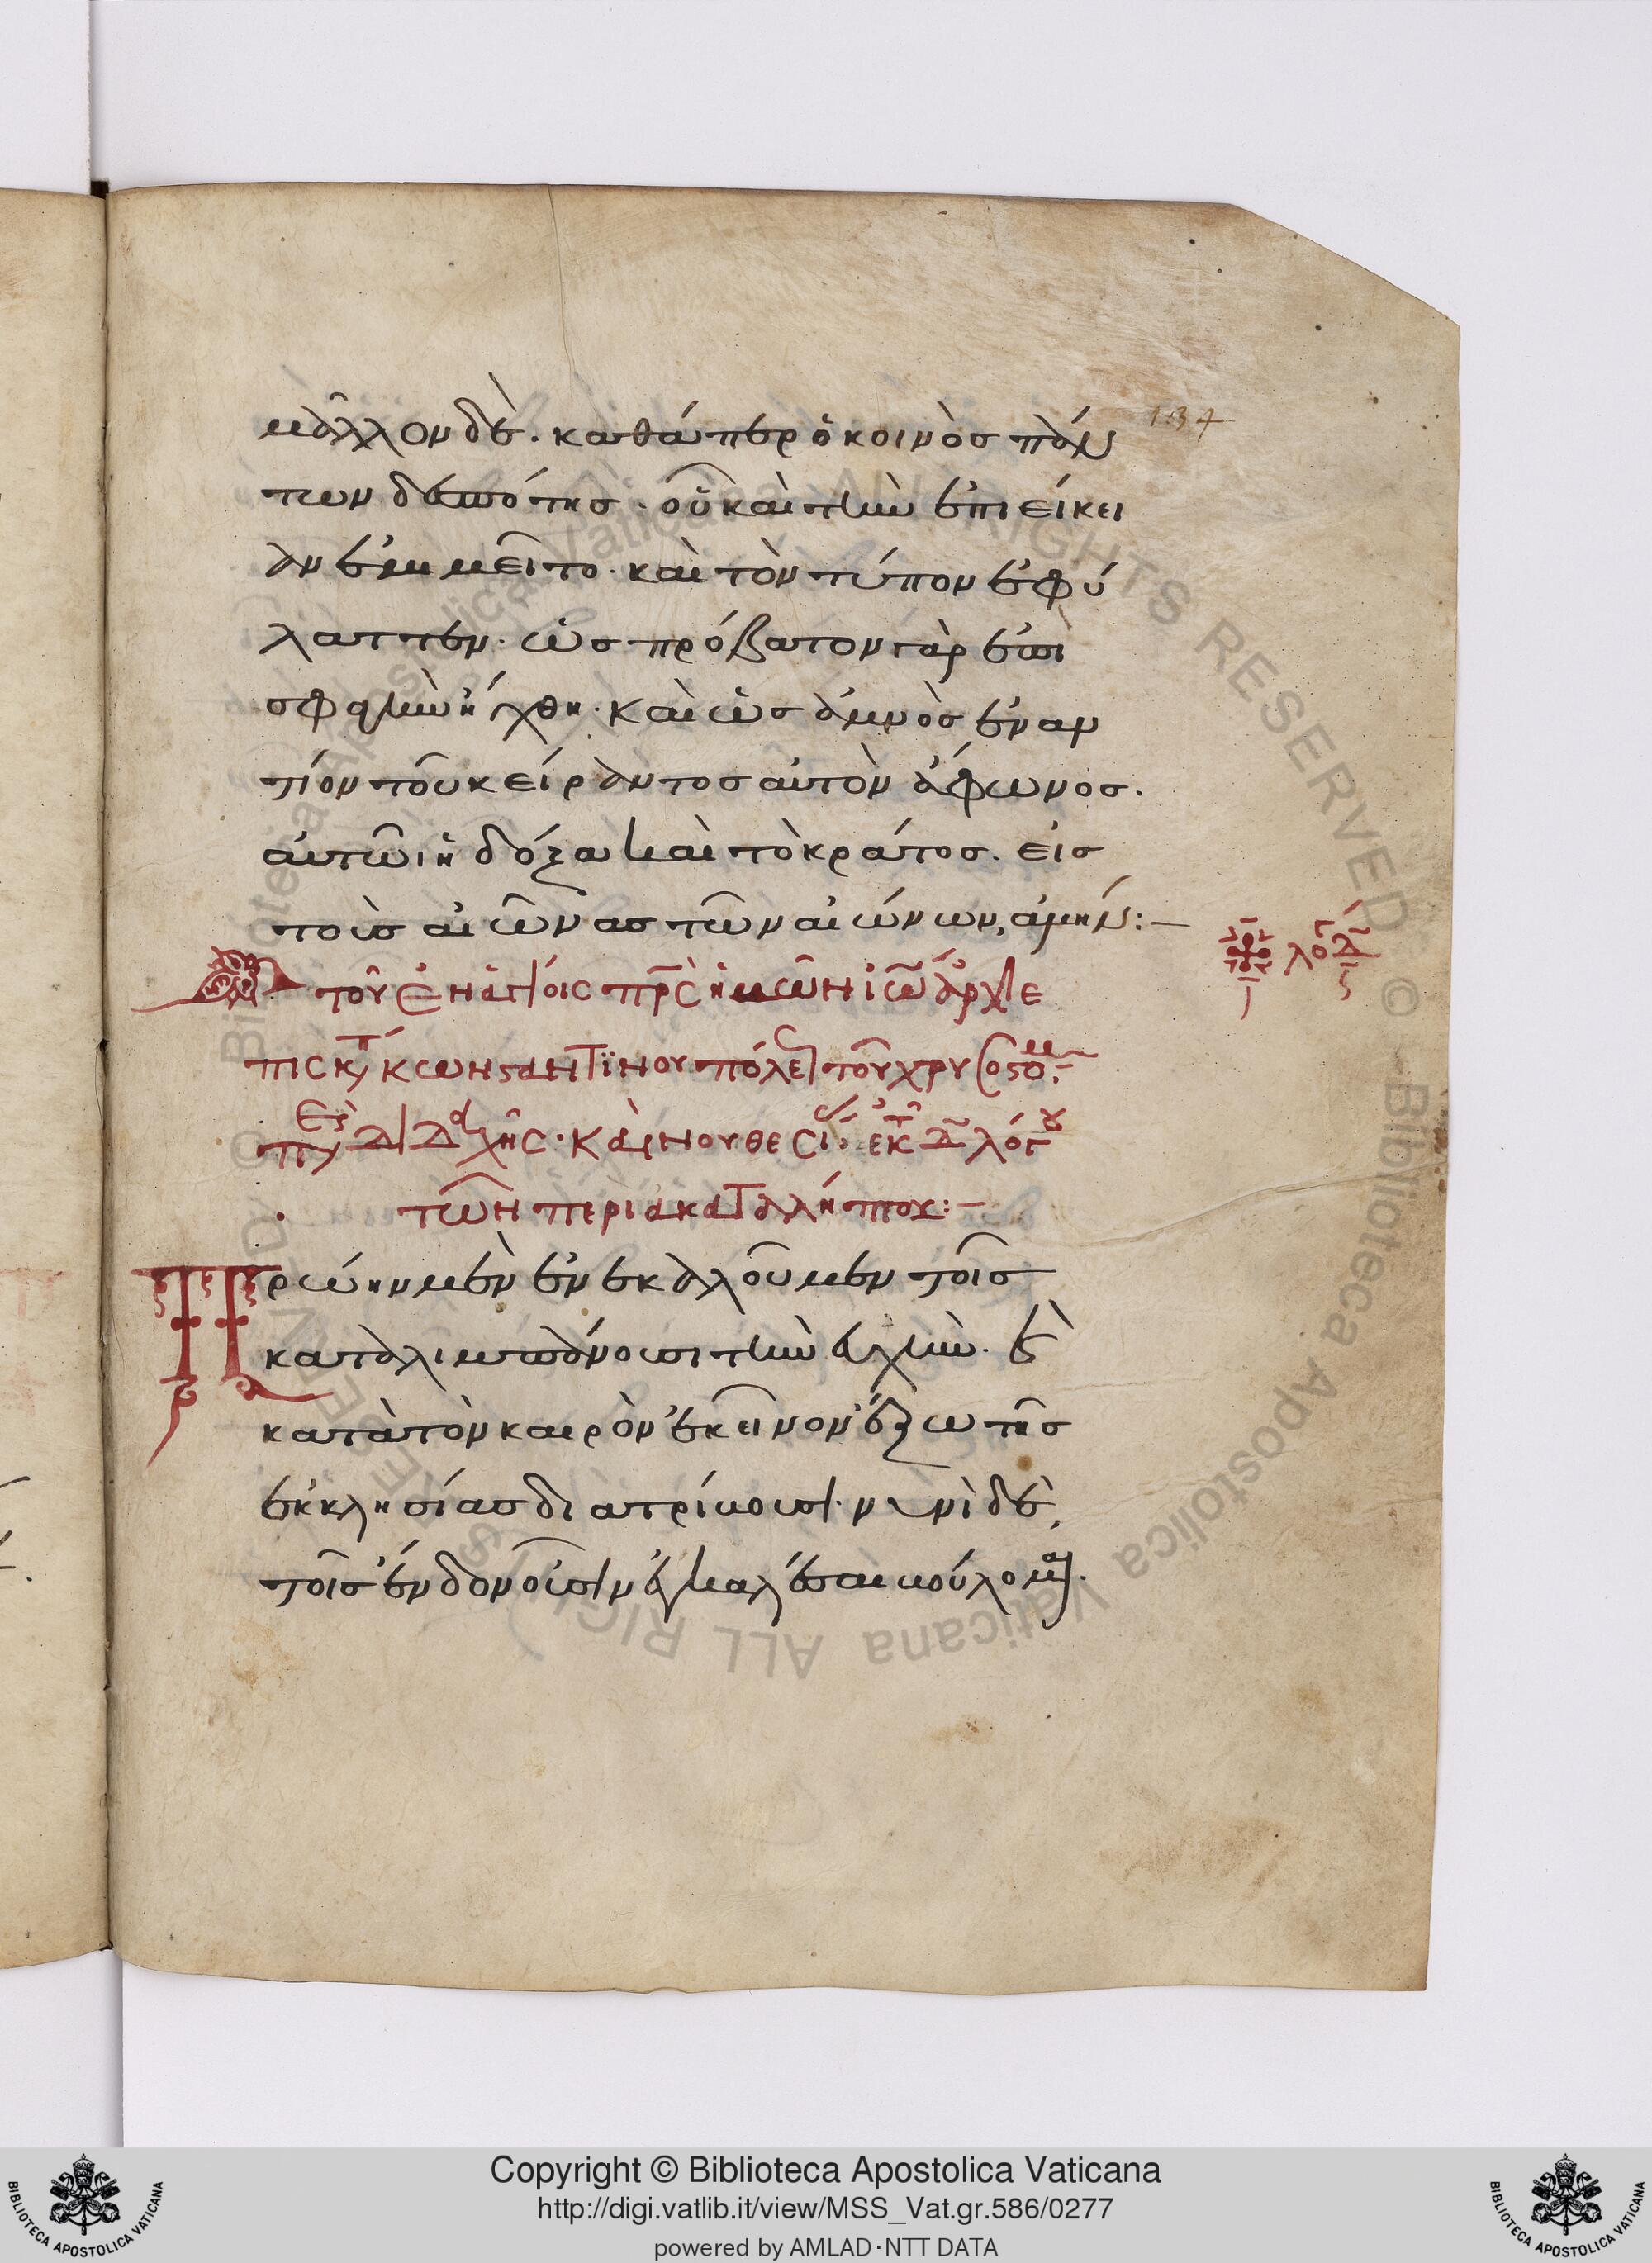 μᾶλλον δὲ. καθάπερ ὁ κοινὸς πάν
των δεσπότης. οὗ καὶ τὴν ἐπιείκει
αν ἐμιμεῖτο. καὶ τὸν τύπον ἐφύ
λαττεν. ὡς πρόβατον γὰρ ἐπι
σφαγὴν ἤχθη. καὶ ὡς ἀμνὸς ἐναν
τίον τοῦ κείραντος αὐτὸν ἄφωνος.
αὐτῶι ἡ δόξα καὶ τὸ κράτος. εἰς
τοὺς αἰῶνας τῶν αἰώνων, ἀμήν:—
λόγ Δ
τοῦ ἐν ἁγίοις πρς ἡμῶν ἰω ἀρχιε
πισκπ κωνσταντϊνουπόλε τοῦ χρυσοστομ
περὶ διδαχῆς. καὶ νουθεσί. ἐκ τ Δ λόγου
τῶν περὶ ἀκαταλήπτου:—
Πρώην μὲν ἐνεκαλοῦμεν τοῖς
καταλιμπάνουσι τὴν εὐχὴν. καὶ
κατὰ τὸν καιρὸν ἐκεῖνον ἔξω τῆς
ἐκκλησίας διατρίβουσι. νυνὶ δὲ,
τοῖς ἔνδον οὖσιν ἐγκαλέσαι βούλομαι.
134
Copyright © Biblioteca Apostolica Vaticana
http://digi.vatlib.it/view/MSS_Vat.gr.586/0277
powered by AMLAD·NTT DATA
BIBLIOTECA APOSTOLICA VATICANA
BIBLIOTECA APOSTOLICA VATICANA